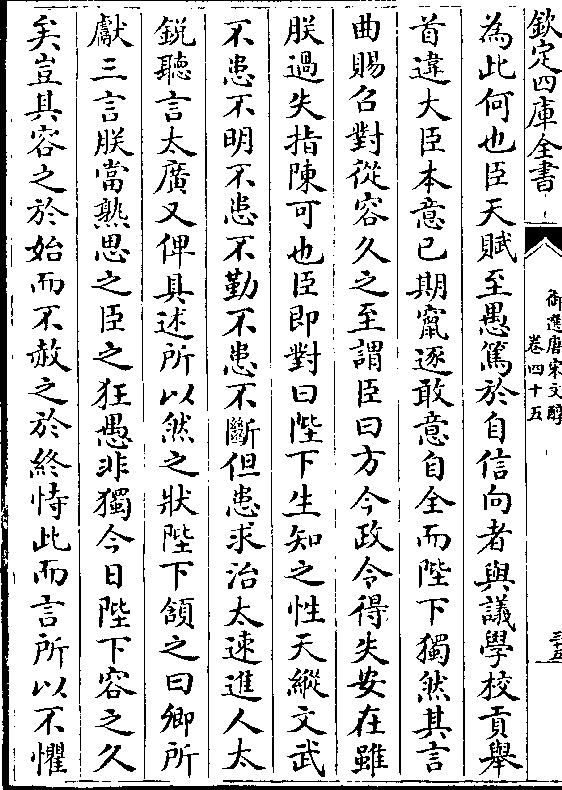 欽定四庫全書
御選唐宋文醇
卷四十五
三十五
為此何也臣天賦至愚篤於自信向者與議學校貢舉
首違大臣本意已期竄逐敢意自全而陛下獨然其言
曲賜召對從容久之至謂臣曰方今政令得失安在雖
朕過失指陳可也臣即對曰陛下生知之性天縱文武
不患不明不患不勤不患不斷但患求治太速進人太
銳聽言太廣又俾具述所以然之狀陛下頷之曰卿所
獻三言朕當熟思之臣之狂愚非獨今日陛下容之久
矣豈其容之於始而不赦之於終恃此而言所以不懼